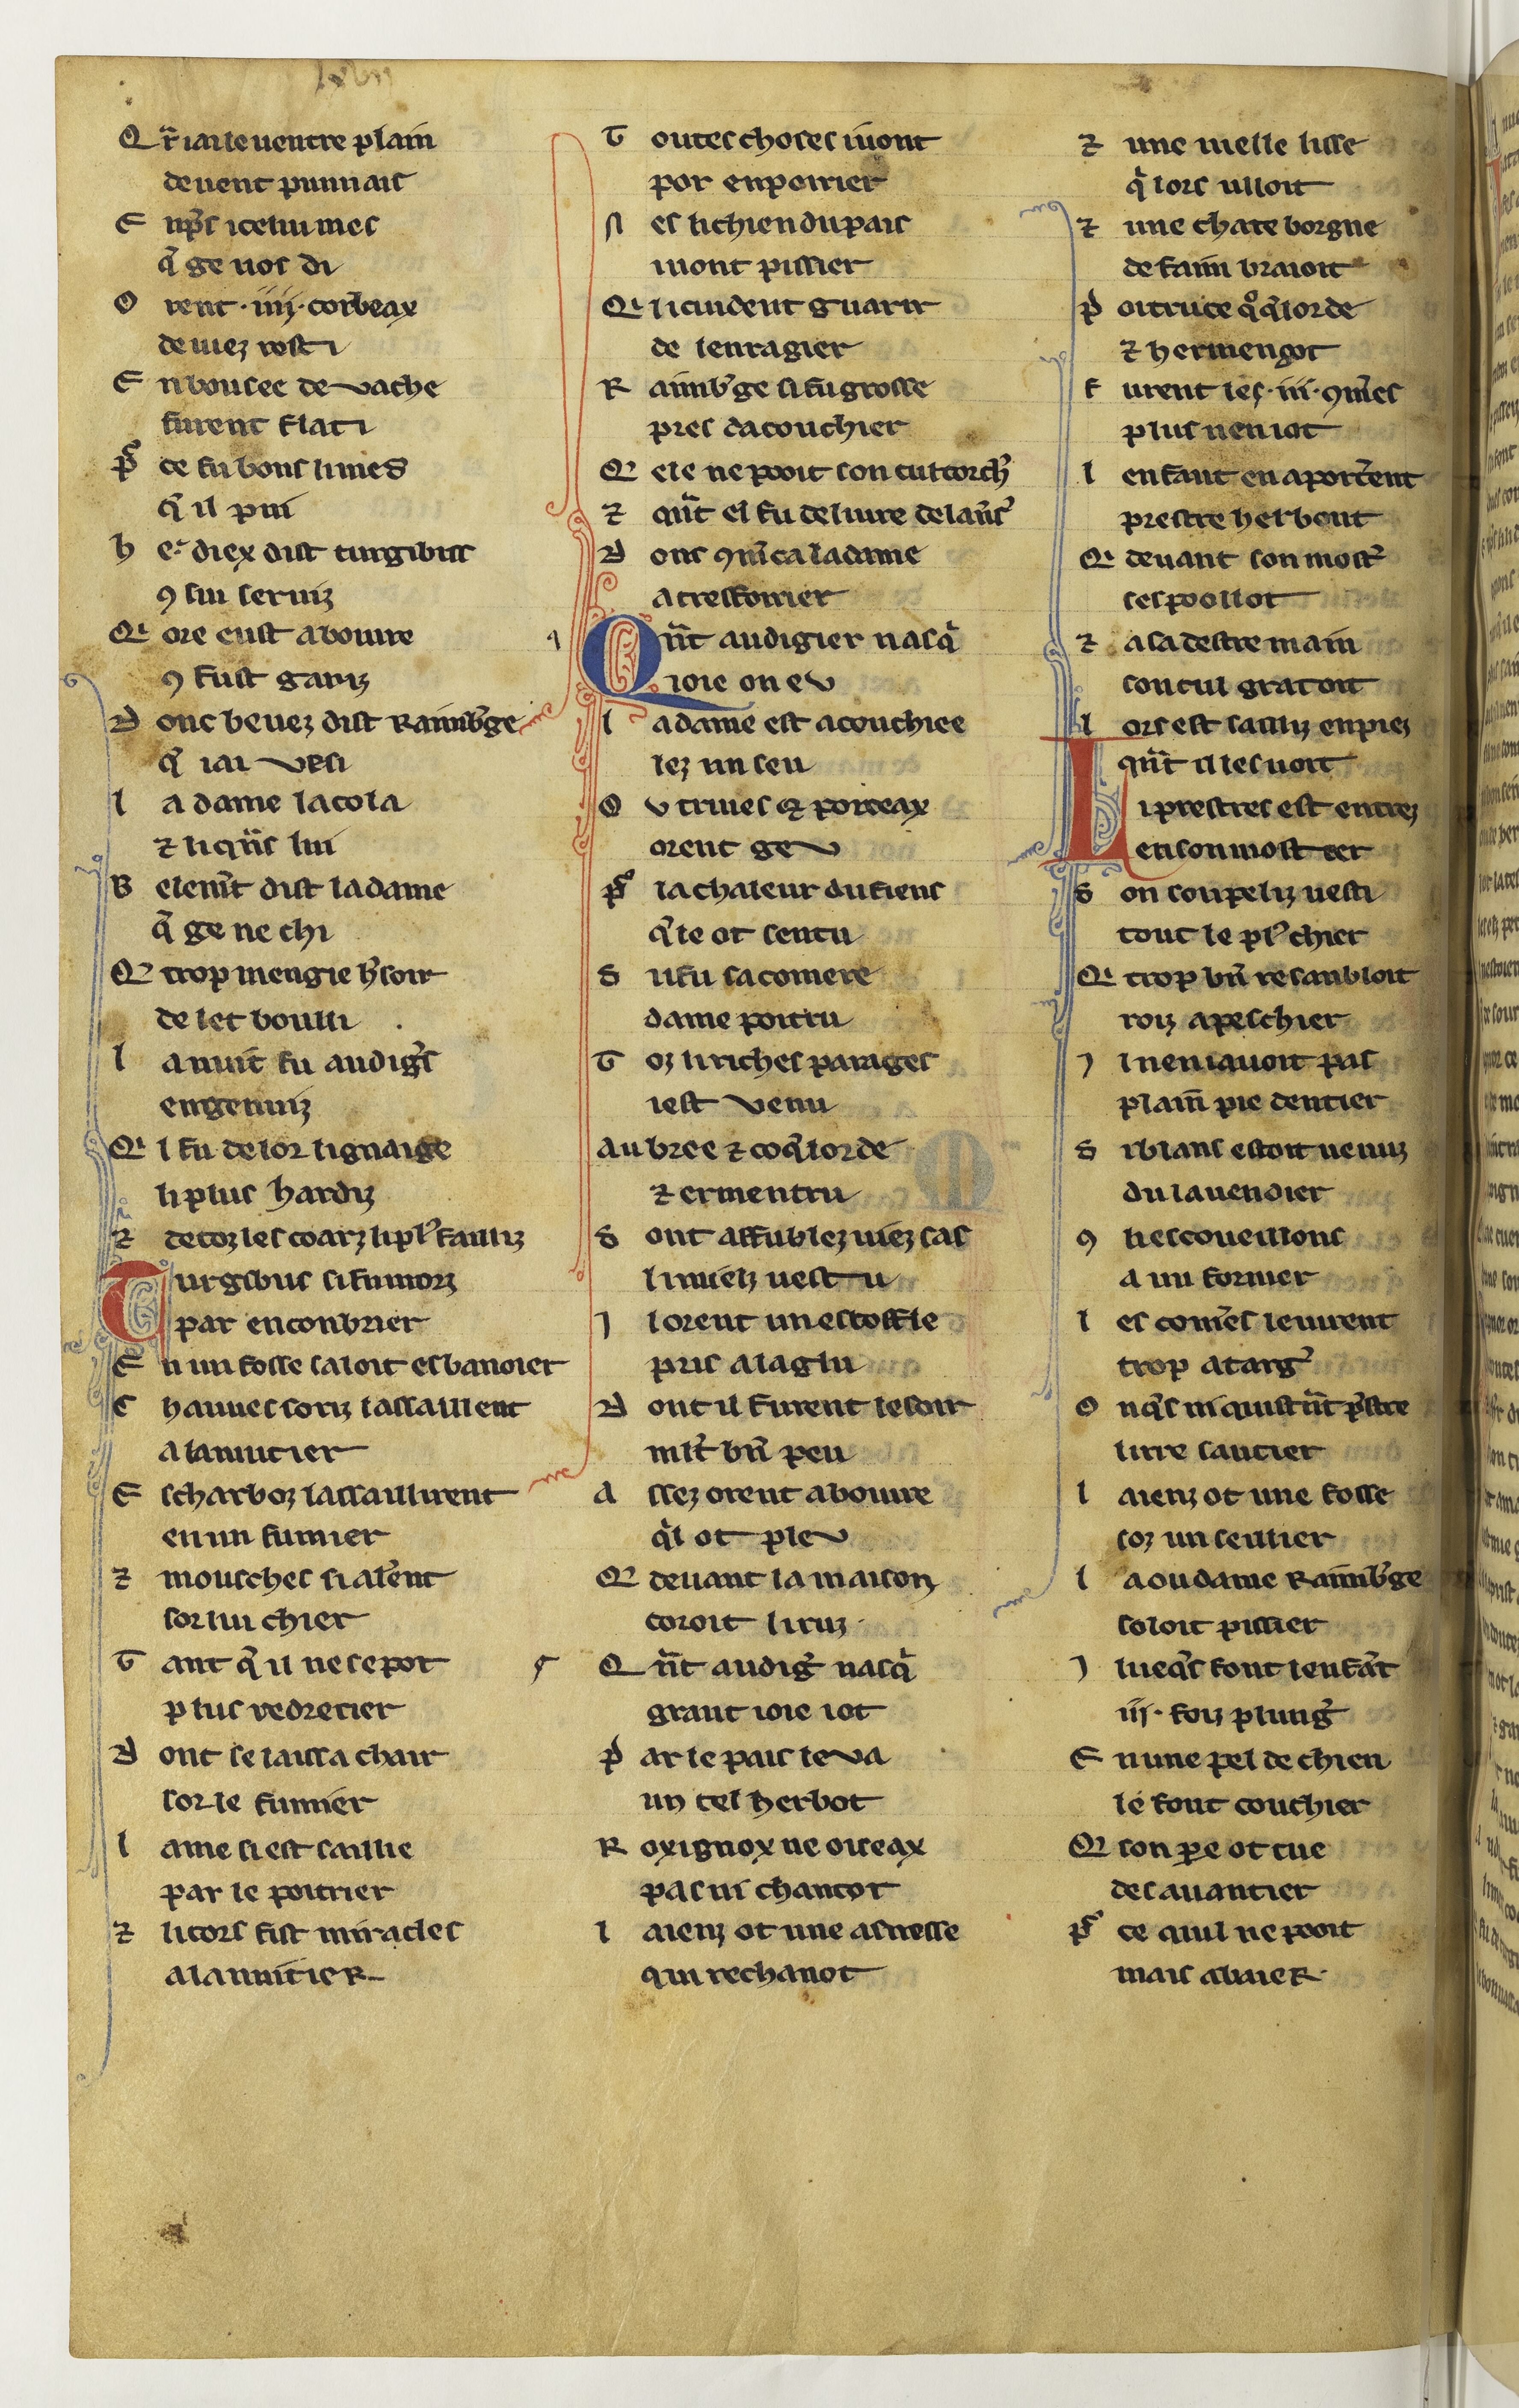 Qr̄ iai le uentre plain
deuient punnais
E np̄s icelui mes
q̄ ge uos di
O rent .iiij. corbeax
de uiez rosti
E n bousee de vache
furent flati
p̄ ce fu bons li mes
q̄ il pui
h e diex dist turgibus
9 sui seruiz
Q ore eust a boiure
9 fust gariz
D onc beuez dist Raimb'ge
q̄ iai vessi
l a dame lacola
⁊ li q̄ns lui
B elem̄t dist la dame
q̄ ge ne chi
Q trop mengie h'soir
de let boulli
l a nuit fu audig's
engenuiz
Q l fu de lor lignaige
li plus hardiz
⁊ de toz les coarz li pl' failliz
Turgibus si fu morz
par enconbrier
E n un fosse saloit esbanoier
C hauues soriz lassaillent
a lanuitier
E scharboz lassaillirent
en un fumier
⁊ mousches si al'ent
sor lui chier
T ant q̄ il ne se pot
plus redrecier
D ont se laissa chair
sor le fumier
l ame si est saillie
par le poitrier
⁊ li cors fist miracles
a lanuitier
T outes choses i uont
por enpoirier
N es li chien du pais
i uont pissier
Q i li cuident guarir
de lenragier
R aimb'ge si fu grosse
pres dacouchier
Q ele ne pooit son cul torch'
⁊ qn̄t el fu deliure de lan̄s'
D onc 9m̄ca la dame
a tressorrier
Qn̄t audigier nasq̄
ioie on ev
l a dame est acouchiee
lez un seu
O v truies ⁊ porceax
orent gev
p̄ la chaleur du fiens
q̄le ot sentu
S i i fu sa comere
dame poitru
T oz li riches parages
i est venu
Aubree ⁊ coq̄lorde
⁊ ermentru
S ont affublez uiez sas
li mielz uestu
J l orent un escoffle
pris a la glu
D ont il furent le soir
ml̄t bn̄ peu
A ssez orent a boiure
q̄l ot plev
Q deuant la maison
coroit li ruz
Q n̄t audig' nasq̄
grant ioie i ot
p ar le pais leva
un tel herbot
R oxignox ne oiseax
pas ni chantot
l aienz ot une asnesse
qui rechanot
⁊ une uielle lisse
q̄ lors ulloit
⁊ une chate borgne
de faim braioit
p oitruce q̄q̄lorde
⁊ hermengot
F urent les .iii. 9m̄es
plus nen i ot
l enfant en aport'ent
prestre herbout
Q deuant son most'
ses poollot
⁊ a sa destre main
son cul gratoit
l ors est sailliz en piez
qn̄t il les uoit
Li prestres est entrez
en son moster
S on soupeliz uesti
tout le pl' chier
Q trop bn̄ resanbloit
roiz a peschier
J l nen i auoit pas
plain pie dentier
S i blans estoit uenuz
du lauendier
9 li escoueillons
a un fornier
l es com'es leuurent
trop atarg'
O nq̄s ni quist n̄t p̄stre
liure sautier
l aienz ot une fosse
soz un sentier
l a ou dame Raimb'ge
soloit pissier
J lueq̄s font lenfāt
iii. foiz plung'
E n une pel de chien
le font couchier
Q son pe ot tue
des auantier
p̄ ce quil ne pooit
mais abaier